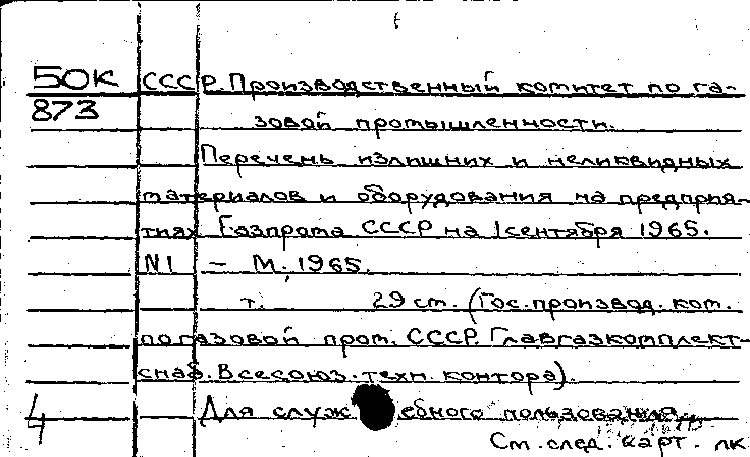 50К СССР. Производственный комитет по га-
873 зовой промышленности.
Перечень излишних и неликвидных
материалов и оборудования на предприя-
тиях Газпрома СССР на 1 сентября 1965.
N1 – М., 1965.
т. 29 ст. (Гос. производ. ком.
по газовой пром. СССР. Главгазкомплект-
снаб. Всесоюз. техн. контора).
4 Для служебного пользования
См. след. карт. лк